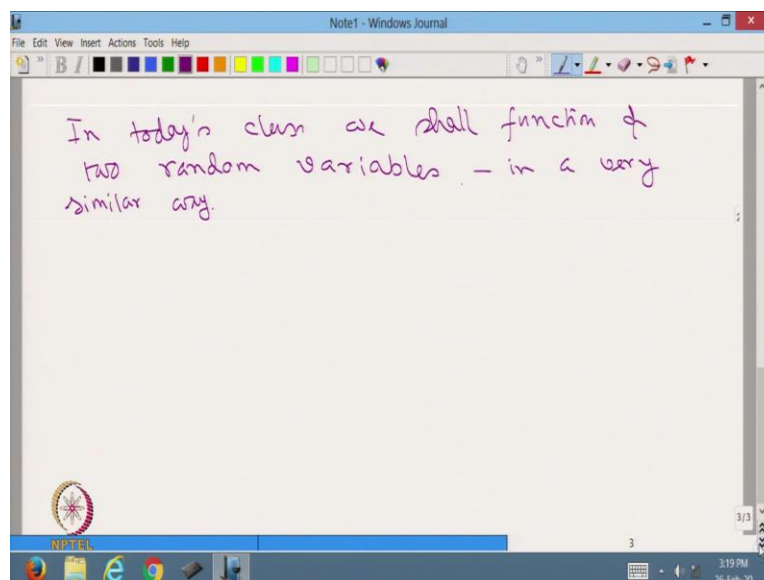 Note1 - Windows Journal
File Edit View Insert Actions Tools Help
B I
In today's class we shall function of
two random variables - in a very
similar way.
NPTEL
3/3
3
3:19 PM
26-Feb-20